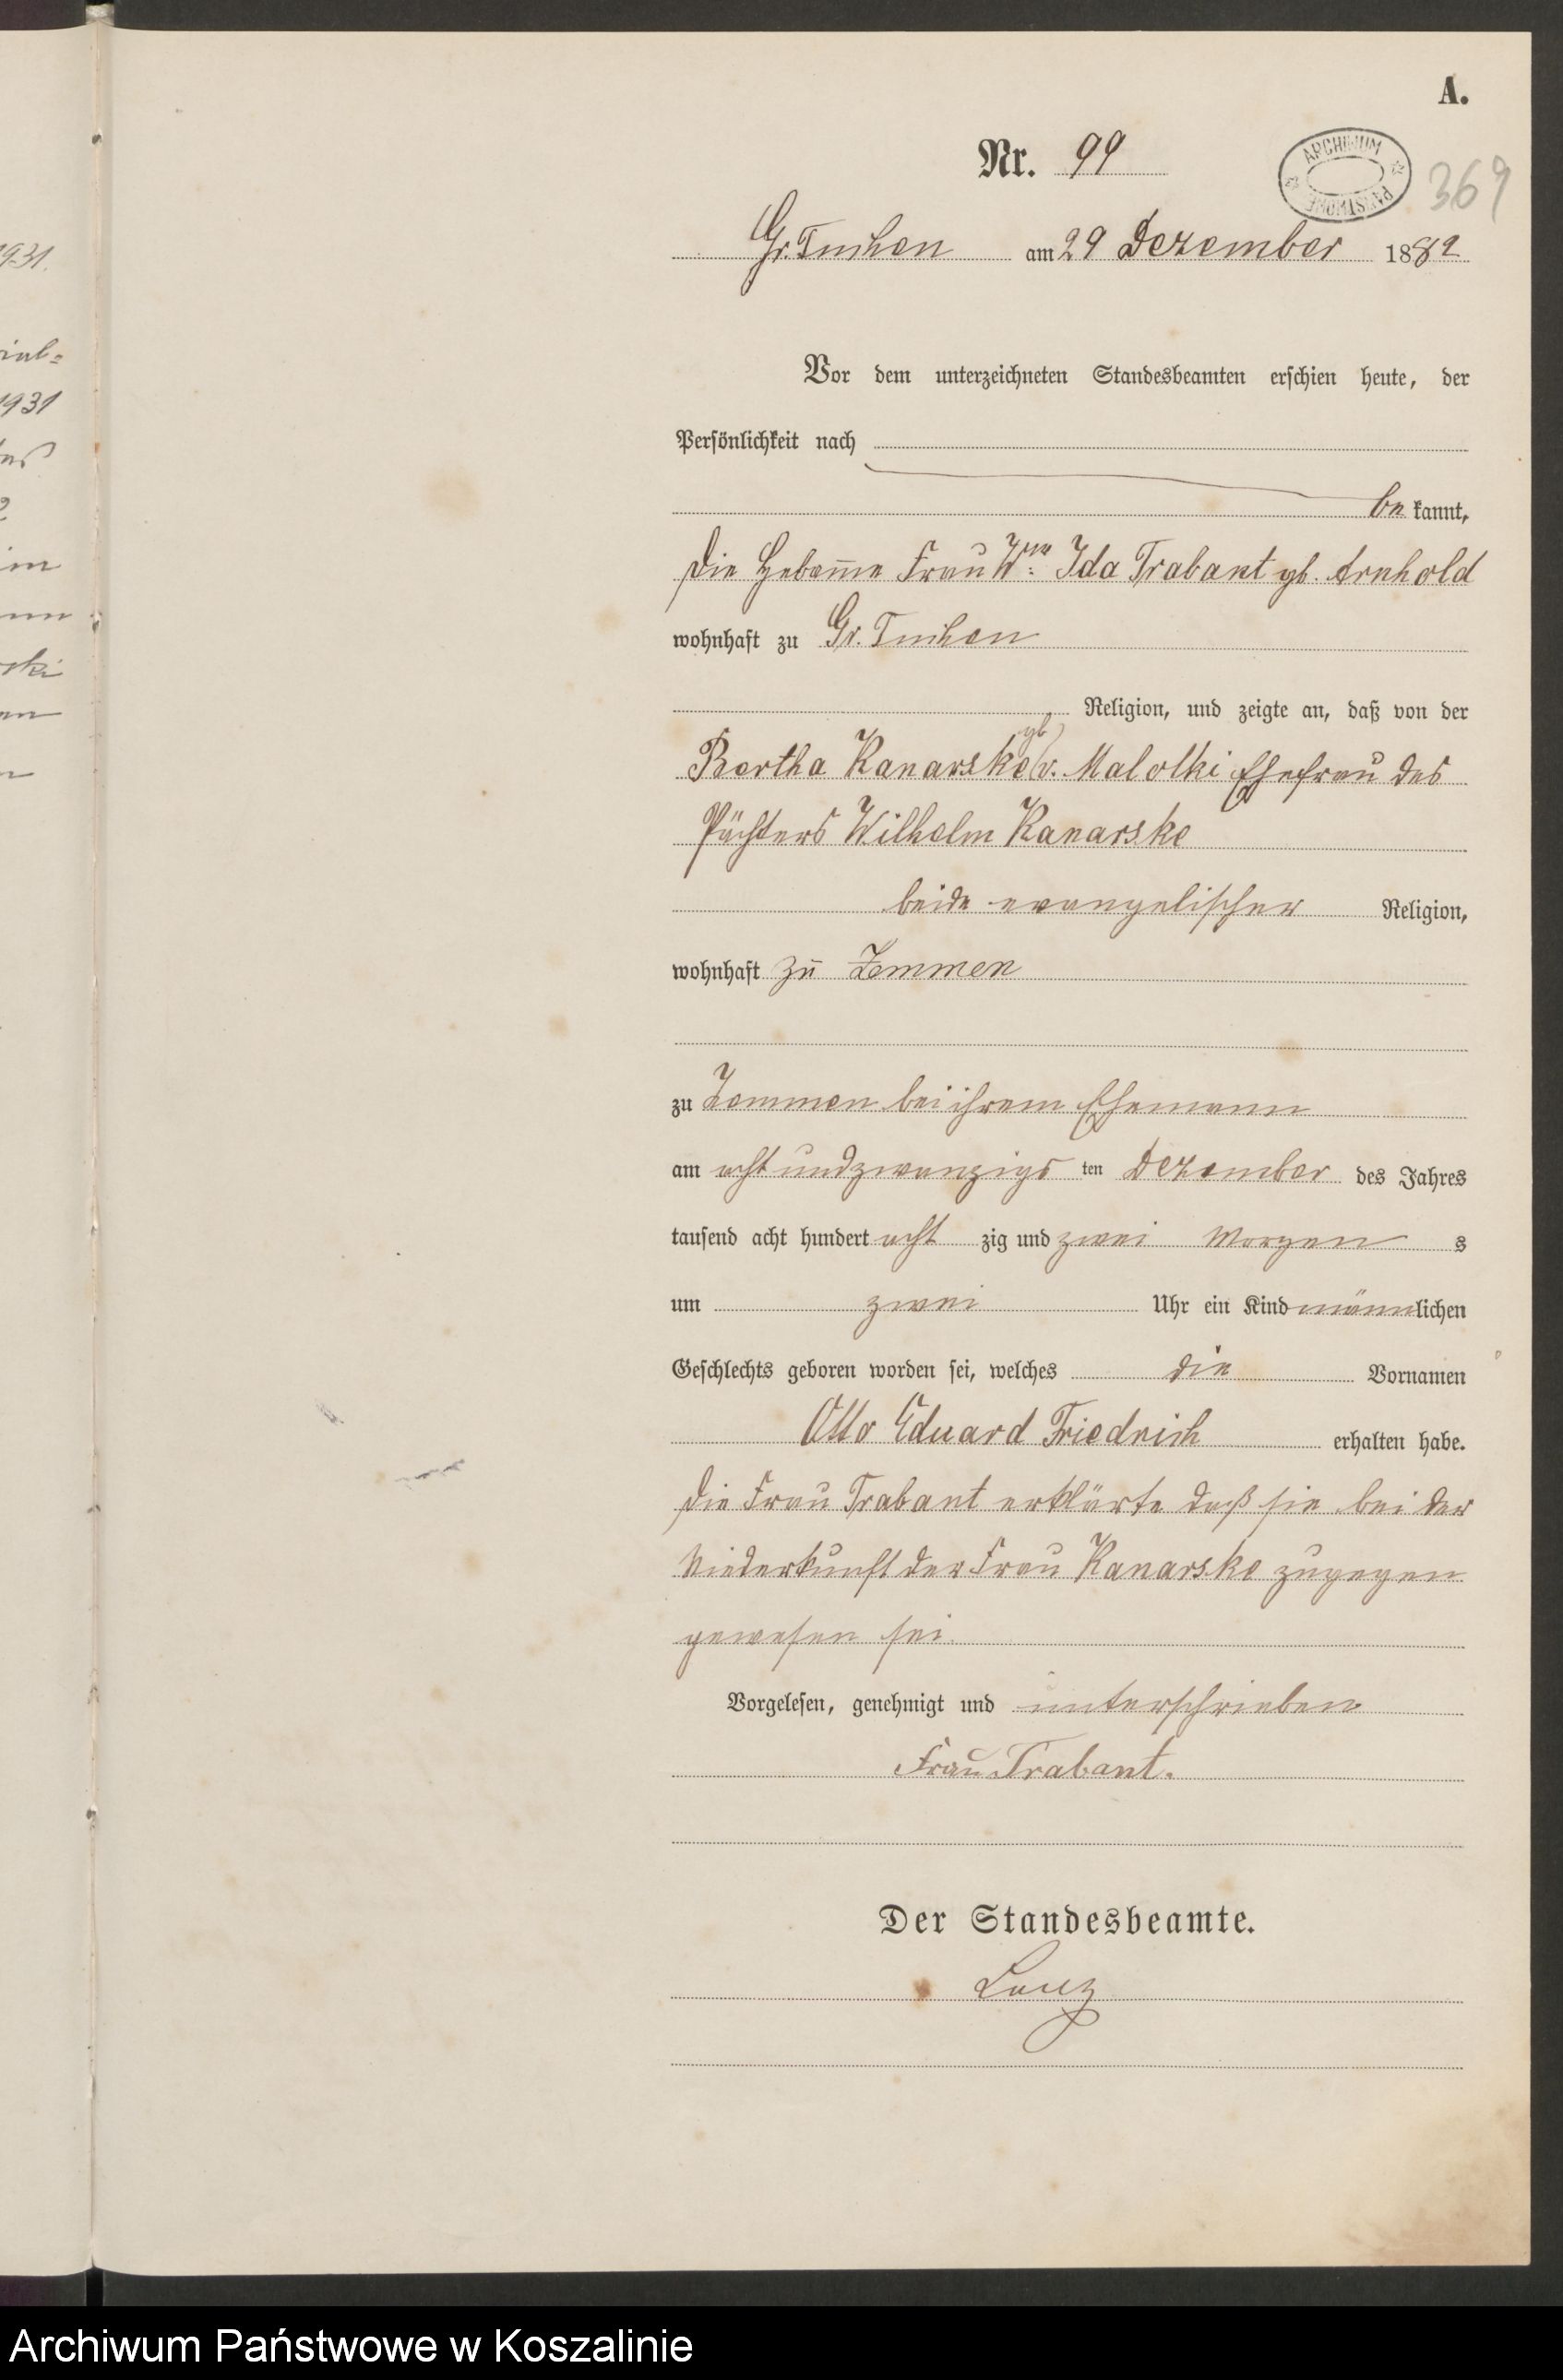 A.
Nr. 99
ARCHIWUM PAŃSTWOWE
369
Gr. Tuchen am 29 Dezember 1882
Vor dem unterzeichneten Standesbeamten erschien heute, der
Persönlichkeit nach
be kannt,
die Hebamme Frau Wwe Ida Trabant gb. Arnhold
wohnhaft zu Gr. Tuchen
Religion, und zeigte an, daß von der
Bertha Kanarske gb v. Malolki Ehefrau des
Pächters Wilhelm Kanarske
beide evangelischer Religion,
wohnhaft zu Zemmen
zu Zemmen bei ihrem Ehemann
am acht und zwanzigs ten Dezember des Jahres
tausend acht hundert acht zig und zwei Morgen s
um zwei Uhr ein Kind männlichen
Geschlechts geboren worden sei, welches die Vornamen
Otto Eduard Friedrich erhalten habe.
die Frau Trabant erklärte daß sie bei der
Niederkunft der Frau Kanarske zugegen
gewesen sei.
Vorgelesen, genehmigt und unterschrieben
Frau Trabant.
Der Standesbeamte.
1931.
1931
Archiwum Państwowe w Koszalinie